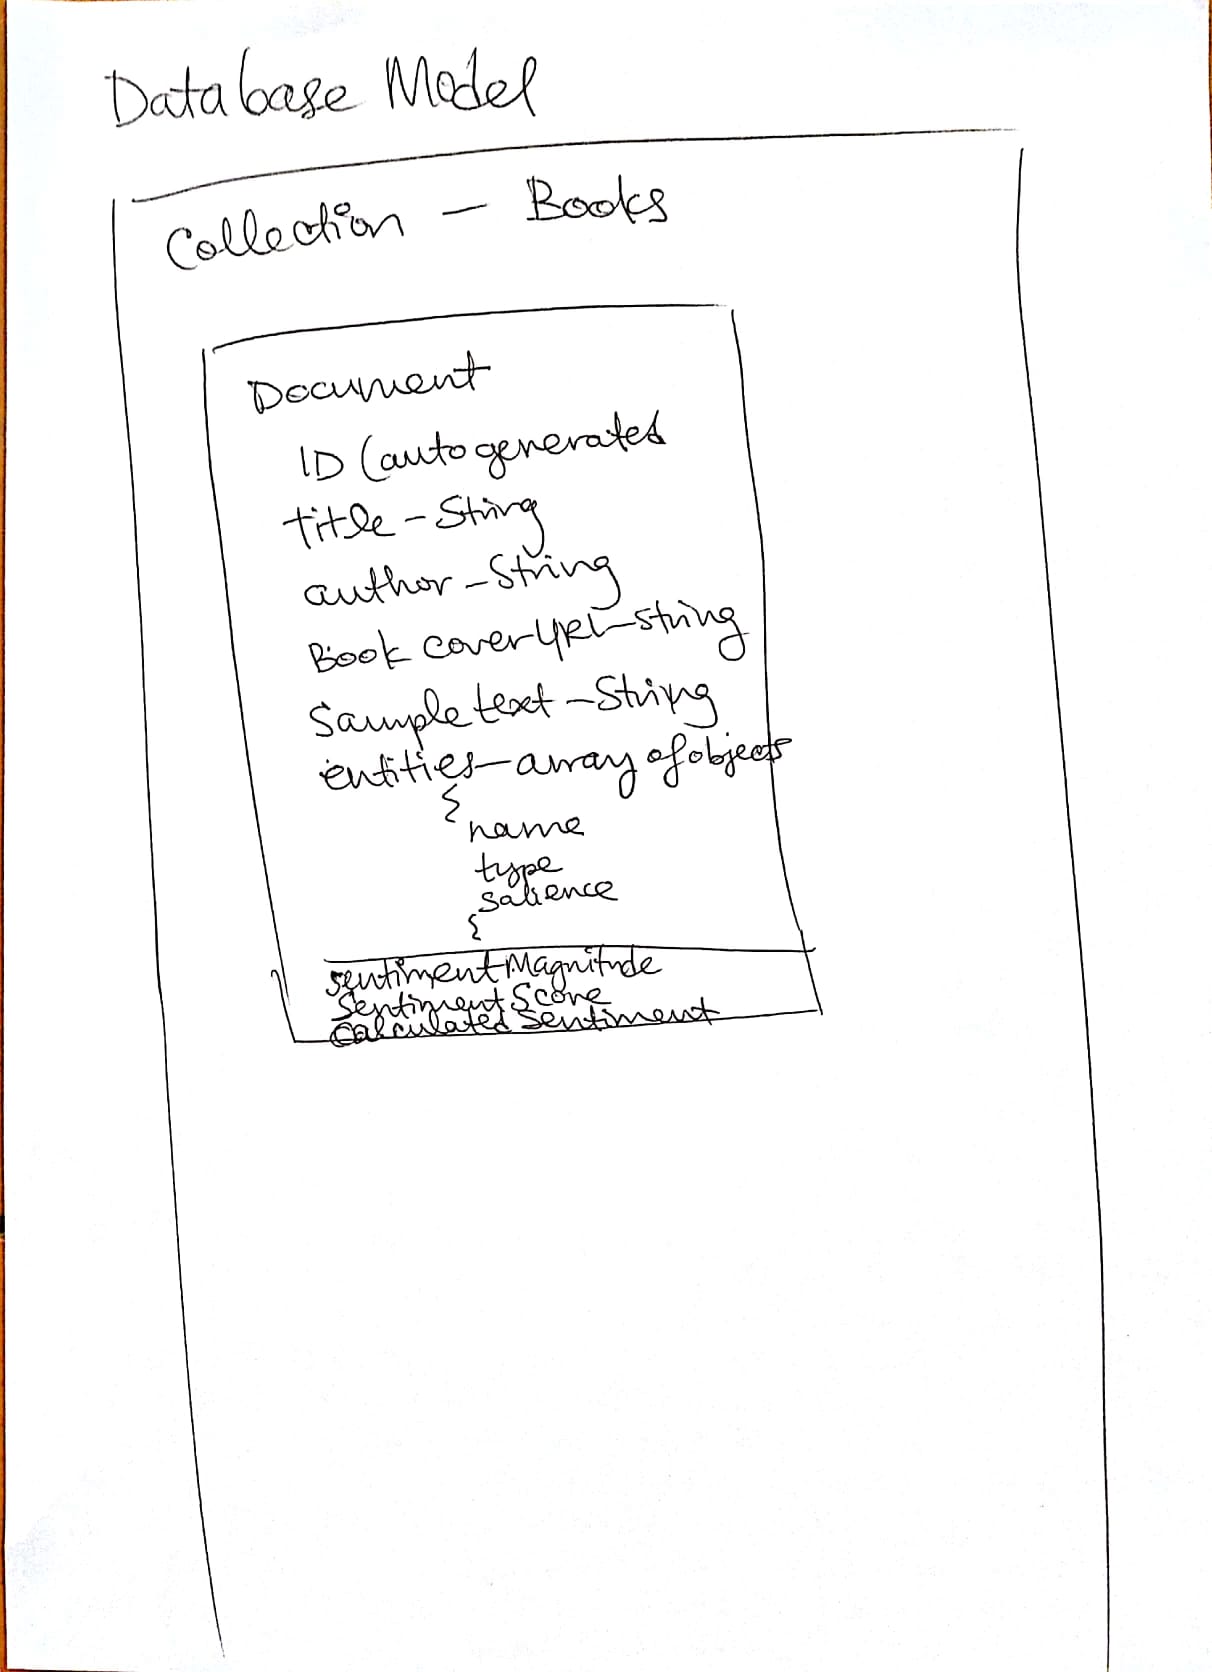 Database Model
Collection - Books
Document
ID (auto generated
title - String
author - String
Book cover URL - string
Sample text - String
entities - array of objects
{
name
type
salience
{
sentiment Magnitude
Sentiment Score
Calculated Sentiment